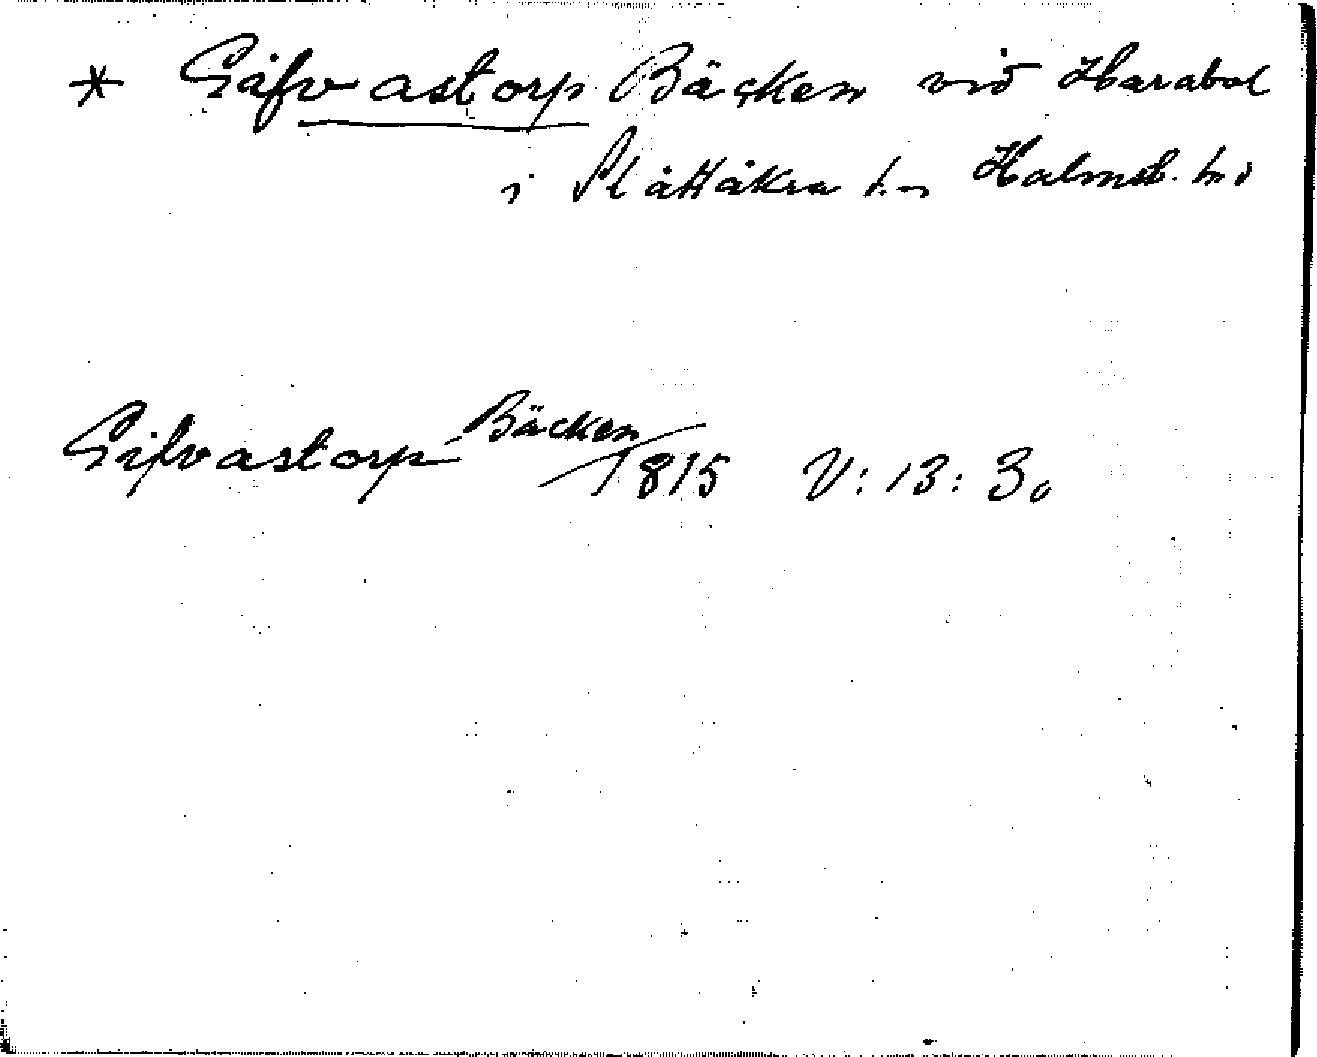 * Gifvastorp Bäcken vid Harabol
i Slättåkra s-n Halmst. hd
Gifvastorp Bäcken / 1815 V: 13: 30